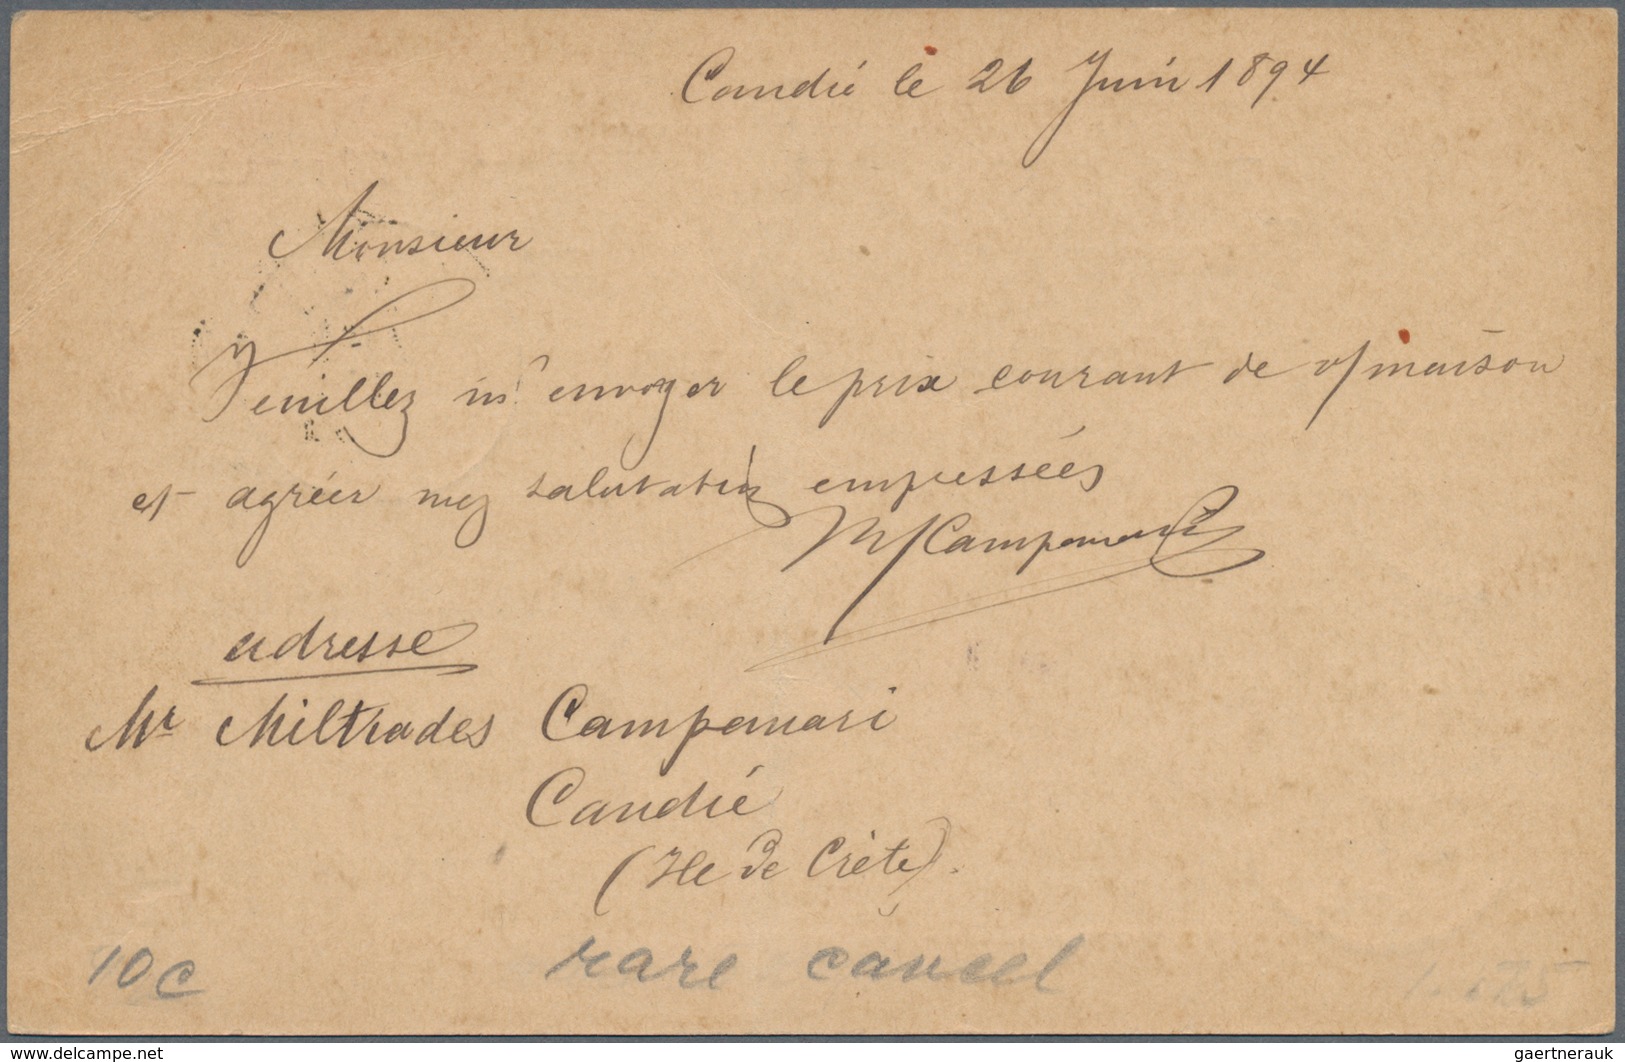 Candié le 26 Juin 1894
Monsieur
Veuillez m'envoyer le prix courant de v/maison
et agréer mes salutations empressées
M Campanari
adresse
Mr Miltiades Campanari
Candié
(Ile de Crète).
10c rare cancel
www.delcampe.net
gaertnerauk